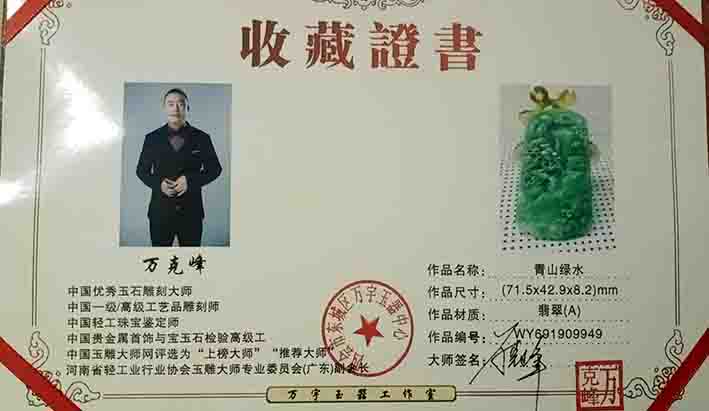 收藏證書
万克峰
中国优秀玉石雕刻大师
中国一级/高级工艺品雕刻师
中国轻工珠宝鉴定师
中国贵金属首饰与宝玉石检验高级工
中国玉雕大师网评选为“上榜大师”“推荐大师”
河南省轻工业行业协会玉雕大师专业委员会(广东)副会长
市东城区万宇玉器中心
作品名称： 青山绿水
作品尺寸： (71.5x42.9x8.2)mm
作品材质： 翡翠(A)
作品编号： WY691909949
大师签名： 万克峰
万克峰
万宇玉器工作室